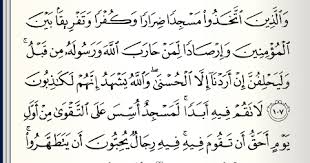 وَٱلَّذِينَ ٱتَّخَذُوا۟ مَسْجِدًا ضِرَارًا وَكُفْرًا وَتَفْرِيقًۢا بَيْنَ
ٱلْمُؤْمِنِينَ وَإِرْصَادًا لِّمَنْ حَارَبَ ٱللَّهَ وَرَسُولَهُۥ مِن قَبْلُ ۚ
وَلَيَحْلِفُنَّ إِنْ أَرَدْنَآ إِلَّا ٱلْحُسْنَىٰ ۖ وَٱللَّهُ يَشْهَدُ إِنَّهُمْ لَكَٰذِبُونَ
١٠٧ لَا تَقُمْ فِيهِ أَبَدًا ۚ لَّمَسْجِدٌ أُسِّسَ عَلَى ٱلتَّقْوَىٰ مِنْ أَوَّلِ
يَوْمٍ أَحَقُّ أَن تَقُومَ فِيهِ ۚ فِيهِ رِجَالٌ يُحِبُّونَ أَن يَتَطَهَّرُوا۟ ۚ